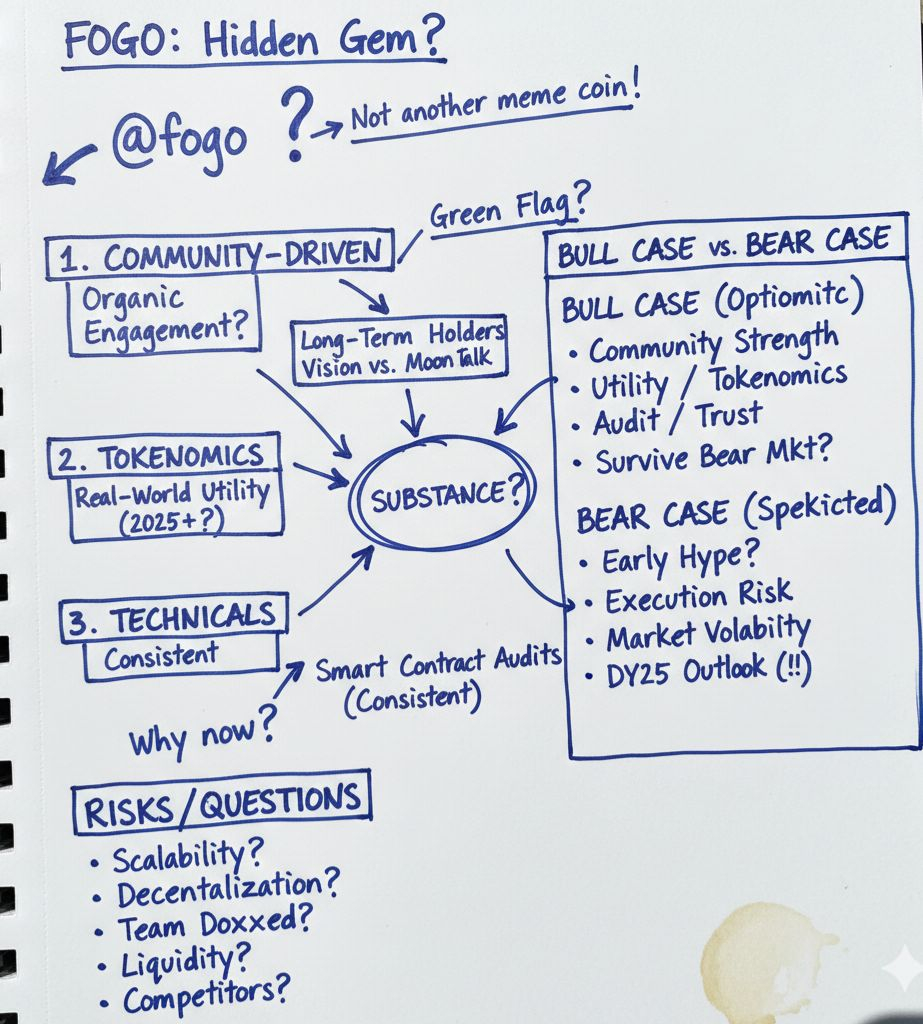 FOGO: Hidden Gem?
@fogo ? → Not another meme coin!
Green Flag?
1. COMMUNITY-DRIVEN
Organic
Engagement?
Long-Term Holders
Vision vs. Moon Talk
2. TOKENOMICS
Real-World Utility
(2025+?)
SUBSTANCE?
3. TECHNICALS
Consistent
Smart Contract Audits
(Consistent)
Why now?
BULL CASE vs. BEAR CASE
BULL CASE (Optiomitc)
• Community Strength
• Utility / Tokenomics
• Audit / Trust
• Survive Bear Mkt?
BEAR CASE (Spekicted)
• Early Hype?
• Execution Risk
• Market Volabilty
• DY25 Outlook (!!)
RISKS/QUESTIONS
• Scalability?
• Decentalization?
• Team Doxxed?
• Liquidity?
• Competitors?